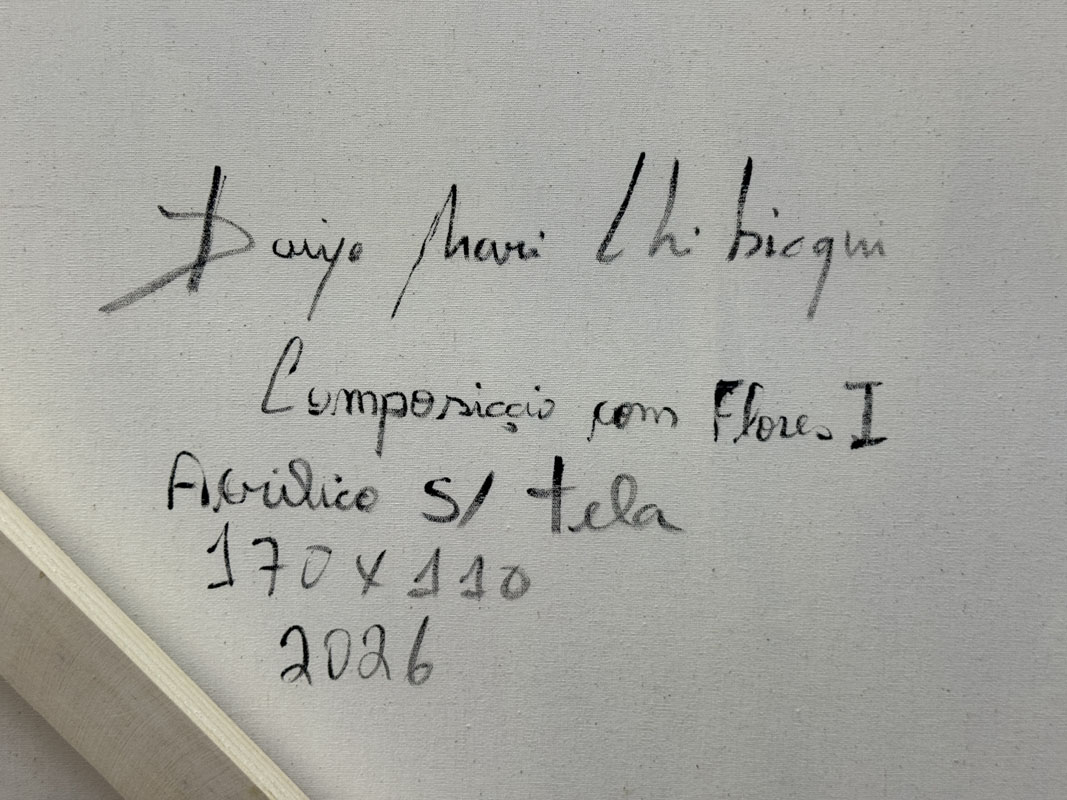 Mari
Composição com Flores I
Acrílico S/ tela
170 x 110
2026